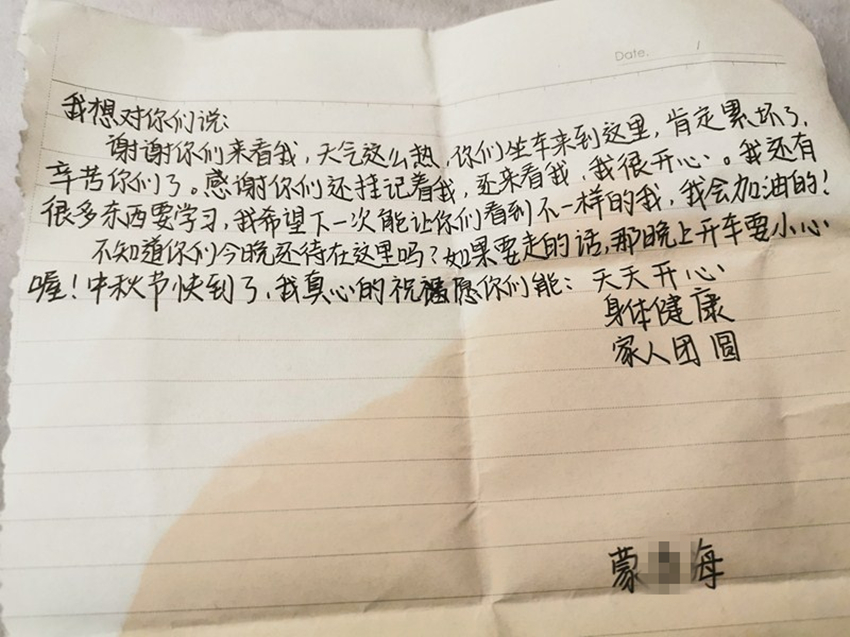 Date. /
我想对你们说:
谢谢你们来看我,天气这么热,你们坐车来到这里,肯定累坏了,
辛苦你们了。感谢你们还挂记着我,还来看我,我很开心。我还有
很多东西要学习,我希望下一次能让你们看到不一样的我,我会加油的!
不知道你们今晚还待在这里吗?如果要走的话,那晚上开车要小心
喔!中秋节快到了,我真心的祝福愿你们能:天天开心
身体健康
家人团圆
蒙 海